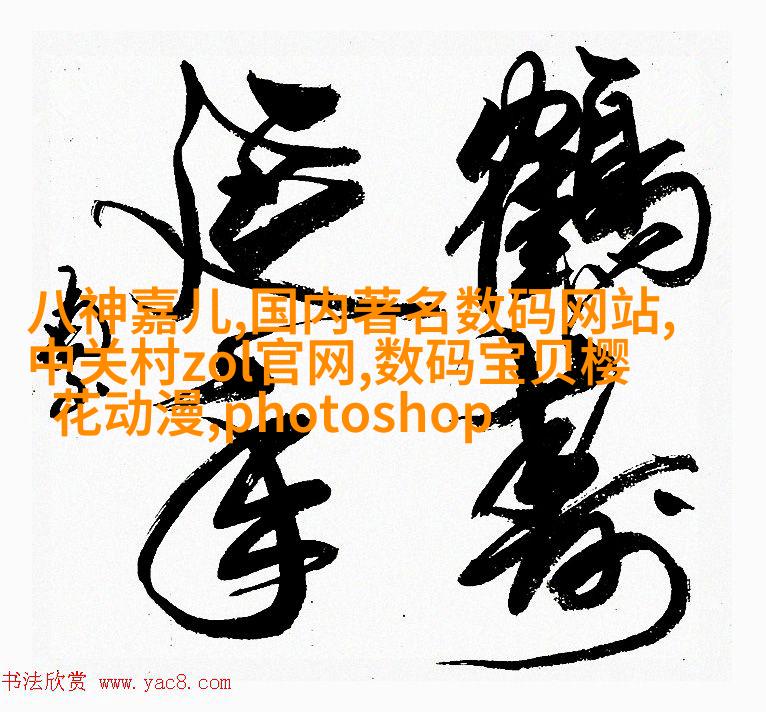 鹤寿
延年
八神嘉儿,国内著名数码网站,
中关村zol官网,数码宝贝樱
花动漫,photoshop
书法欣赏 www.yac8.com